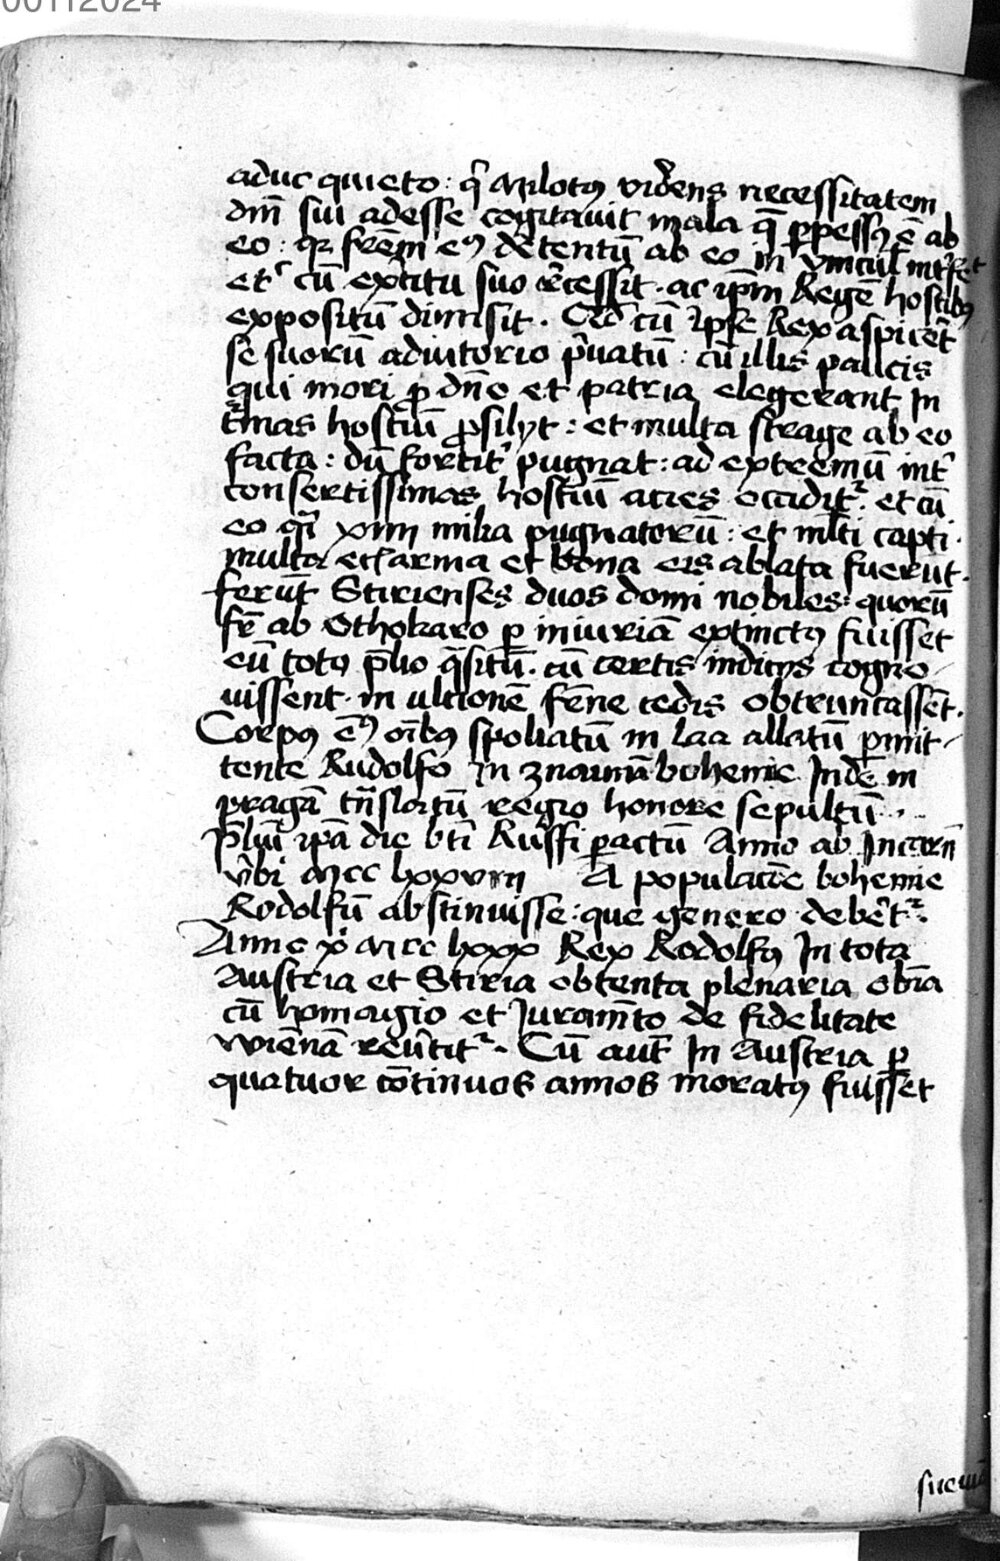 00112024
aduc quieto : qr̄ Milotꝯ videns necessitatem
dnī sui adesse cogitauit mala q̄ ꝑpessꝯ ē ab
eo : qꝛ frēm eiꝯ detentū ab eo in vincul
et cū exꝰcitu suo recessit · ac ip̄m Regē hostibꝯ
expositū dimisit · cū ip̄se Rex aspicet
se suorū adiutorio p̄uatū : cū illis paucis
qui mori ꝓ dno et patria elegerant In
t̄mas hostiū ꝓsilyt : et multa strage ab eo
facta : dū fortit᷑ pugnat : ad extremū int᷑
confertissimas hostiū acies occidit᷑ · et cū
eo qi xiiii milia pugnatorū : et ml̄ti capti ·
multa arma et bona eis ablata fuerūt ·
ferūt Stirienses duos domi nobiles : quorū
fr̄ ab Othokaro ꝑ iniuriā extinctꝯ fuisset
eū totꝯ p̄lio q̄situ̅ · cū certis indicijs cogno-
uissent · in ultionē obtruncassēt ·
Corpꝯ oībꝯ spoliatū in Laa allatū ꝑmit-
tente Rudolfo In znaimā bohemie Inde in
pragā tn̄slatū regio honore sepultū ·
P̄liū ip̄a die bti Ruffi ꝑactū Anno ab Incarn̄
v̄bi Mcc lxxviii A populatōe bohemie
Rodolfū abstinuisse : que genero debet᷑ ·
Anno x̄i Mcc lxxx Rex Rodolfꝯ In tota
Austria et Stiria obtenta plenaria ob̄ia
cū homagio et Iuram̄to de fidelitate
wiēnā reūtit᷑ · Cū aut̄ In Austria ꝑ
quatuor cōtinuos annos moratꝯ fuisset